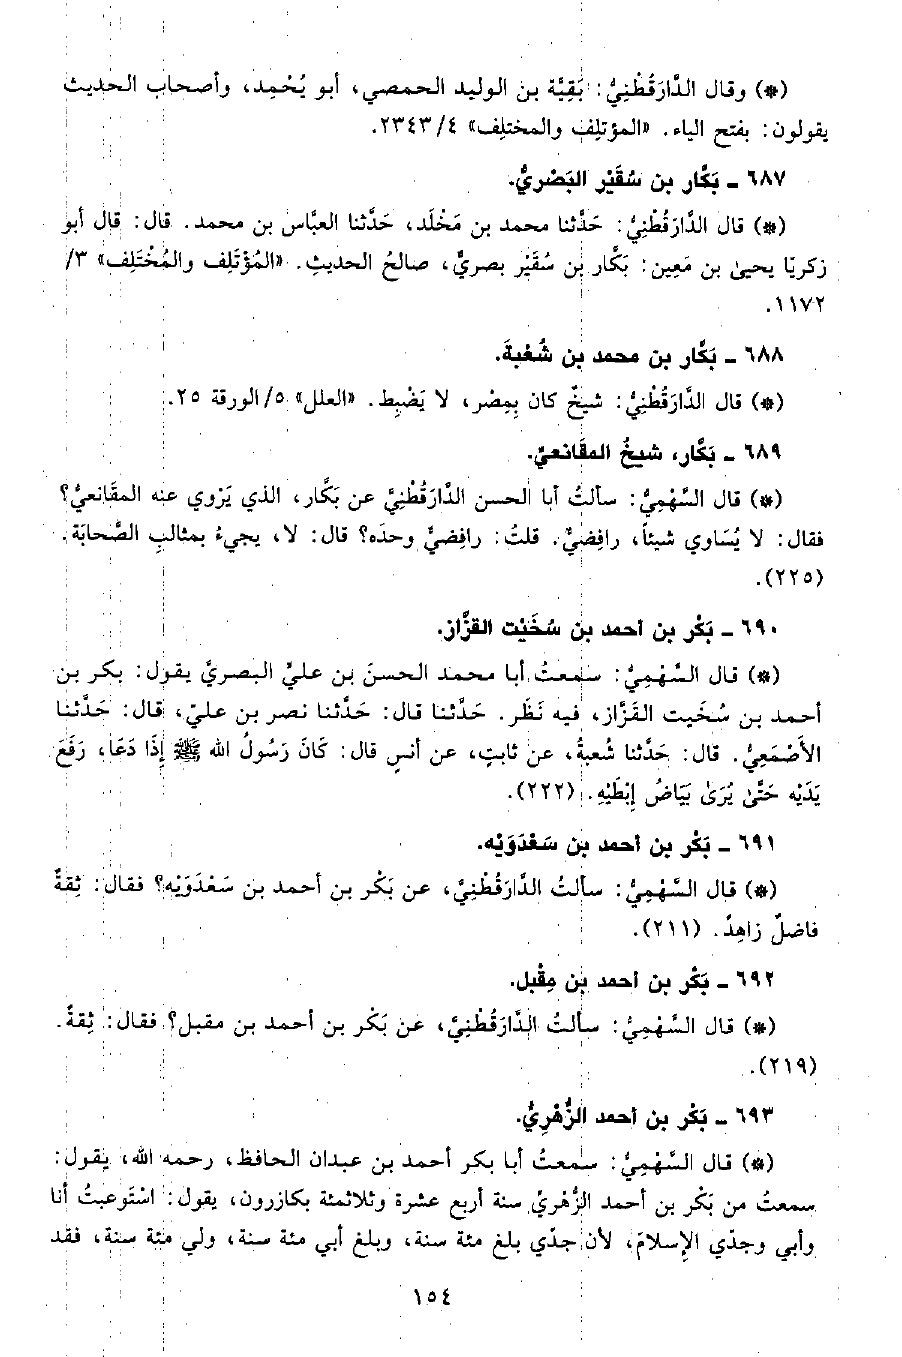 (*) وقال الدَّارَقُطْنِيُّ: بَقِيَّة بن الوليد الحمصي، أبو يُحْمِد، وأصحاب الحديث
يقولون: بفتح الياء. «المؤتلِف والمختلِف» ٤/ ٢٣٤٣.
٦٨٧ - بَكَّار بن سُقَيْر البَصْرِيُّ.
(*) قال الدَّارَقُطْنِيُّ: حَدَّثنا محمد بن مَخْلَد، حَدَّثنا العبَّاس بن محمد. قال: قال أبو
زكريّا يحيىٰ بن مَعِين: بَكَّار بن سُقَيْر بصريٌّ، صالحُ الحديثِ. «المُؤتَلِف والمُخْتَلِف» ٣/
١١٧٢.
٦٨٨ - بَكَّار بن محمد بن شُعْبةَ.
(*) قال الدَّارَقُطْنِيُّ: شيخٌ كان بِمِصْر، لا يَضْبِط. «العلل» ٥/ الورقة ٢٥.
٦٨٩ - بَكَّار، شيخُ المقَانعيِّ.
(*) قال السَّهْمِيُّ: سألتُ أبا الحسن الدَّارَقُطْنِيَّ عن بَكَّار، الذي يَرْوي عنه المقَانعيُّ؟
فقال: لا يُسَاوي شيئاً، رافِضيٌّ. قلتُ: رافِضيٌّ وحدَه؟ قال: لا، يجيءُ بمثالبِ الصَّحابَة.
(٢٢٥).
٦٩٠ - بَكْر بن احمد بن سُخَيْت القزَّاز.
(*) قال السَّهْمِيُّ: سمعتُ أبا محمد الحسنَ بن عليٍّ البصريَّ يقول: بكر بن
أحمد بن سُخَيت القَزَّاز، فيه نَظَر. حَدَّثنا قال: حَدَّثنا نصر بن عليّ، قال: حَدَّثنا
الأَصْمَعِيُّ. قال: حَدَّثنا شُعبةُ، عن ثابتٍ، عن أنسٍ قال: كَانَ رَسُولُ الله ﷺ إِذَا دَعَا، رَفَعَ
يَدَيْه حَتَّىٰ يُرَىٰ بَيَاضُ إِبْطَيْهِ. (٢٢٢).
٦٩١ - بَكْر بن احمد بن سَعْدَوَيْه.
(*) قال السَّهْمِيُّ: سألتُ الدَّارَقُطْنِيَّ، عن بَكْر بن أحمد بن سَعْدَوَيْه؟ فقال: ثِقةٌ
فاضلٌ زاهِدٌ. (٢١١).
٦٩٢ - بَكْر بن احمد بن مِقْبل.
(*) قال السَّهْمِيُّ: سألتُ الدَّارَقُطْنِيَّ، عن بَكْر بن أحمد بن مقبل؟ فقال: ثِقةٌ.
(٢١٩).
٦٩٣ - بَكْر بن احمد الزُّهْرِيُّ.
(*) قال السَّهْمِيُّ: سمعتُ أبا بكر أحمد بن عبدان الحافظ، رحمه الله، يقول:
سمعتُ من بَكْر بن أحمد الزُّهْريِّ سنة أربع عشرة وثلاثمئة بكازرون، يقول: اسْتَوعبتُ أنا
وأبي وجدّي الإِسلامَ، لأن جدّي بلغ مئة سنة، وبلغ أبي مئة سنة، ولي مئة سنة، فقد
١٥٤